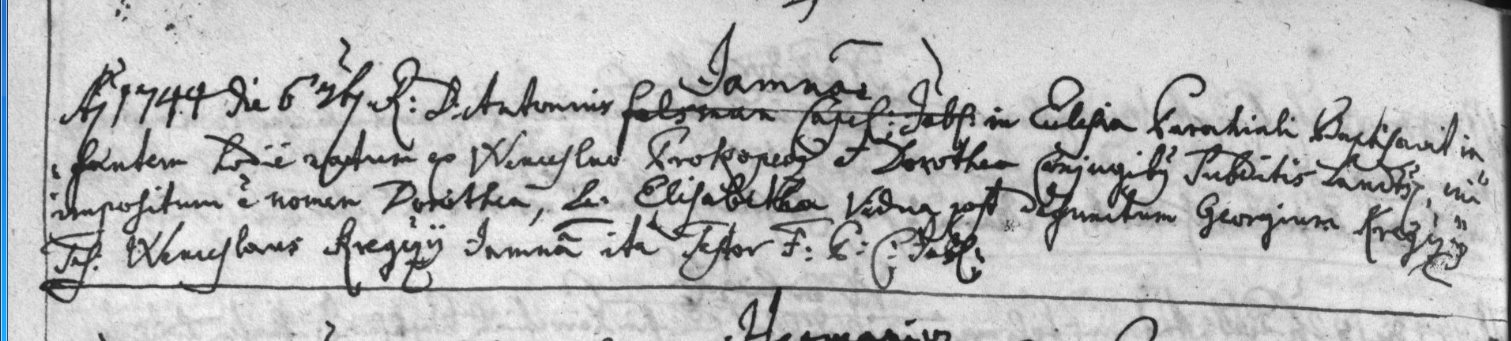 Jamnā
Aō 1744 die 6 7bris R: D: Antonius Felsman Capel: Jabl: in Eclesia Parochiali Baptisavit in
fantem hodie natum ex Wenceslao Prokopeg et Dorothea Conjugibus Subditis Lands:, cui
impositum ē nomen Dorothea, Le: Elisabetha Vidua post defunctum Georgium Kregzy
Tes: Wenceslaus Kregzy Jamnā ita Testor F: P: C: Jabl: